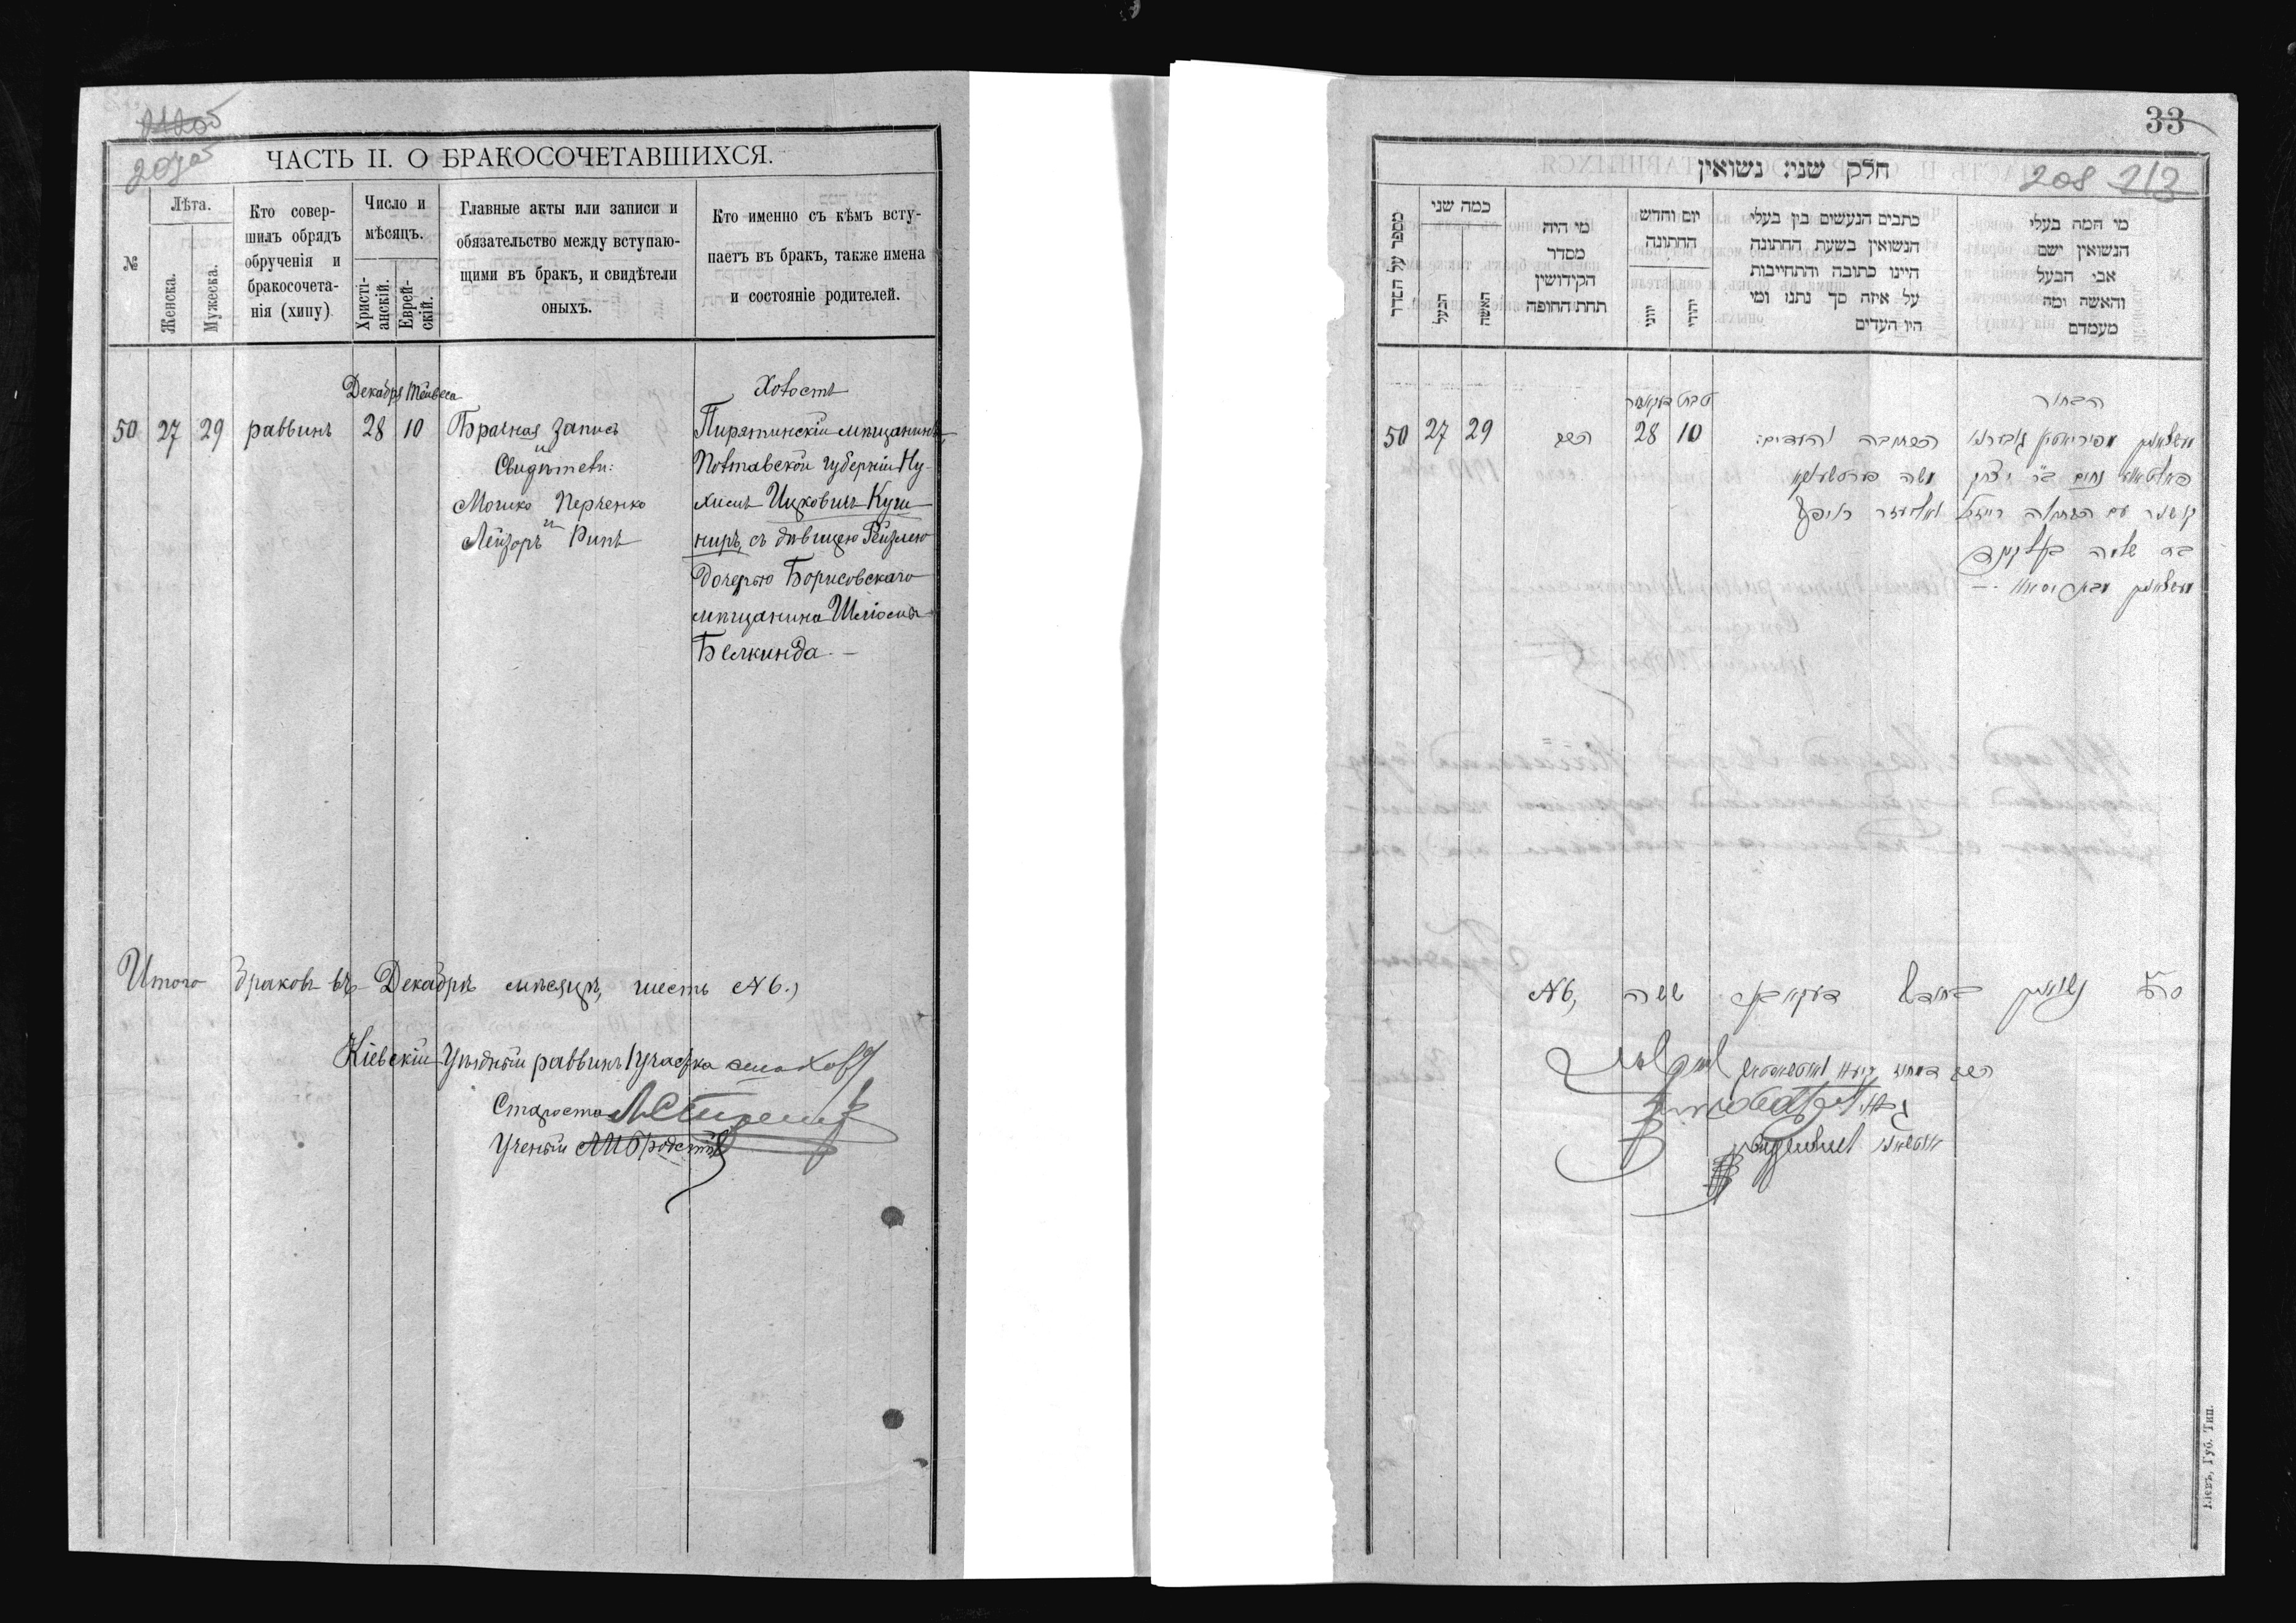 207об
ЧАСТЬ II. О БРАКОСОЧЕТАВШИХСЯ.
№
Лѣта.
Женска.
Мужеска.
Кто совер-
шилъ обрядъ
обрученія и
бракосочета-
нія (хипу)
Число и
мѣсяцъ.
Христі-
анскій.
Еврей-
скій.
Главные акты или записи и
обязательство между вступаю-
щими въ бракъ, и свидѣтели
оныхъ.
Кто именно съ кѣмъ всту-
паетъ въ бракъ, также имена
и состояніе родителей.
Декабря Тейвеса
50 27 29 раввинъ 28 10
Брачная запись
и
Свидѣтели:
Мошко Перченко
и
Лейзоръ Рипъ
Холостъ
Пирятинскій мѣщанинъ
Полтавской губерніи Ну-
химъ Ицковичъ Куш-
ниръ, съ дѣвицею Рейзлею
дочерью Борисовскаго
мѣщанина Шліомы
Белкинда. —
Итого браковъ въ Декабрѣ мѣсяцѣ, шесть №6.)
Кіевскій Уѣздный раввинъ I участка
Староста
Ученый
33
208 213
חלק שני: נשואין
מספר על הסדר
כמה שני
הבעל
האשה
מי היה
מסדר
הקידושין
תחת החופה
יום וחדש
החתונה
יוני
יהודי
כתבים הנעשים בין בעלי
הנשואין בשעת החתונה
היינו כתובה והתחייבות
על איזה סך נתנו ומי
היו העדים
מי המה בעלי
הנשואין ושם
אבי הבעל
והאשה ומה
מעמדם
50 27 29 הרב 28 10
הכתובה והעדים:
משה פערטשענקא
ואליעזר ריפ
הבחור
נחום ב״ר יצחק
קושניר עם הבתולה רייזל
בת שלמה בעלקינד
סה״כ נשואין בחודש דעקאבר ששה №6,
Кіевъ, Губ. Тип.